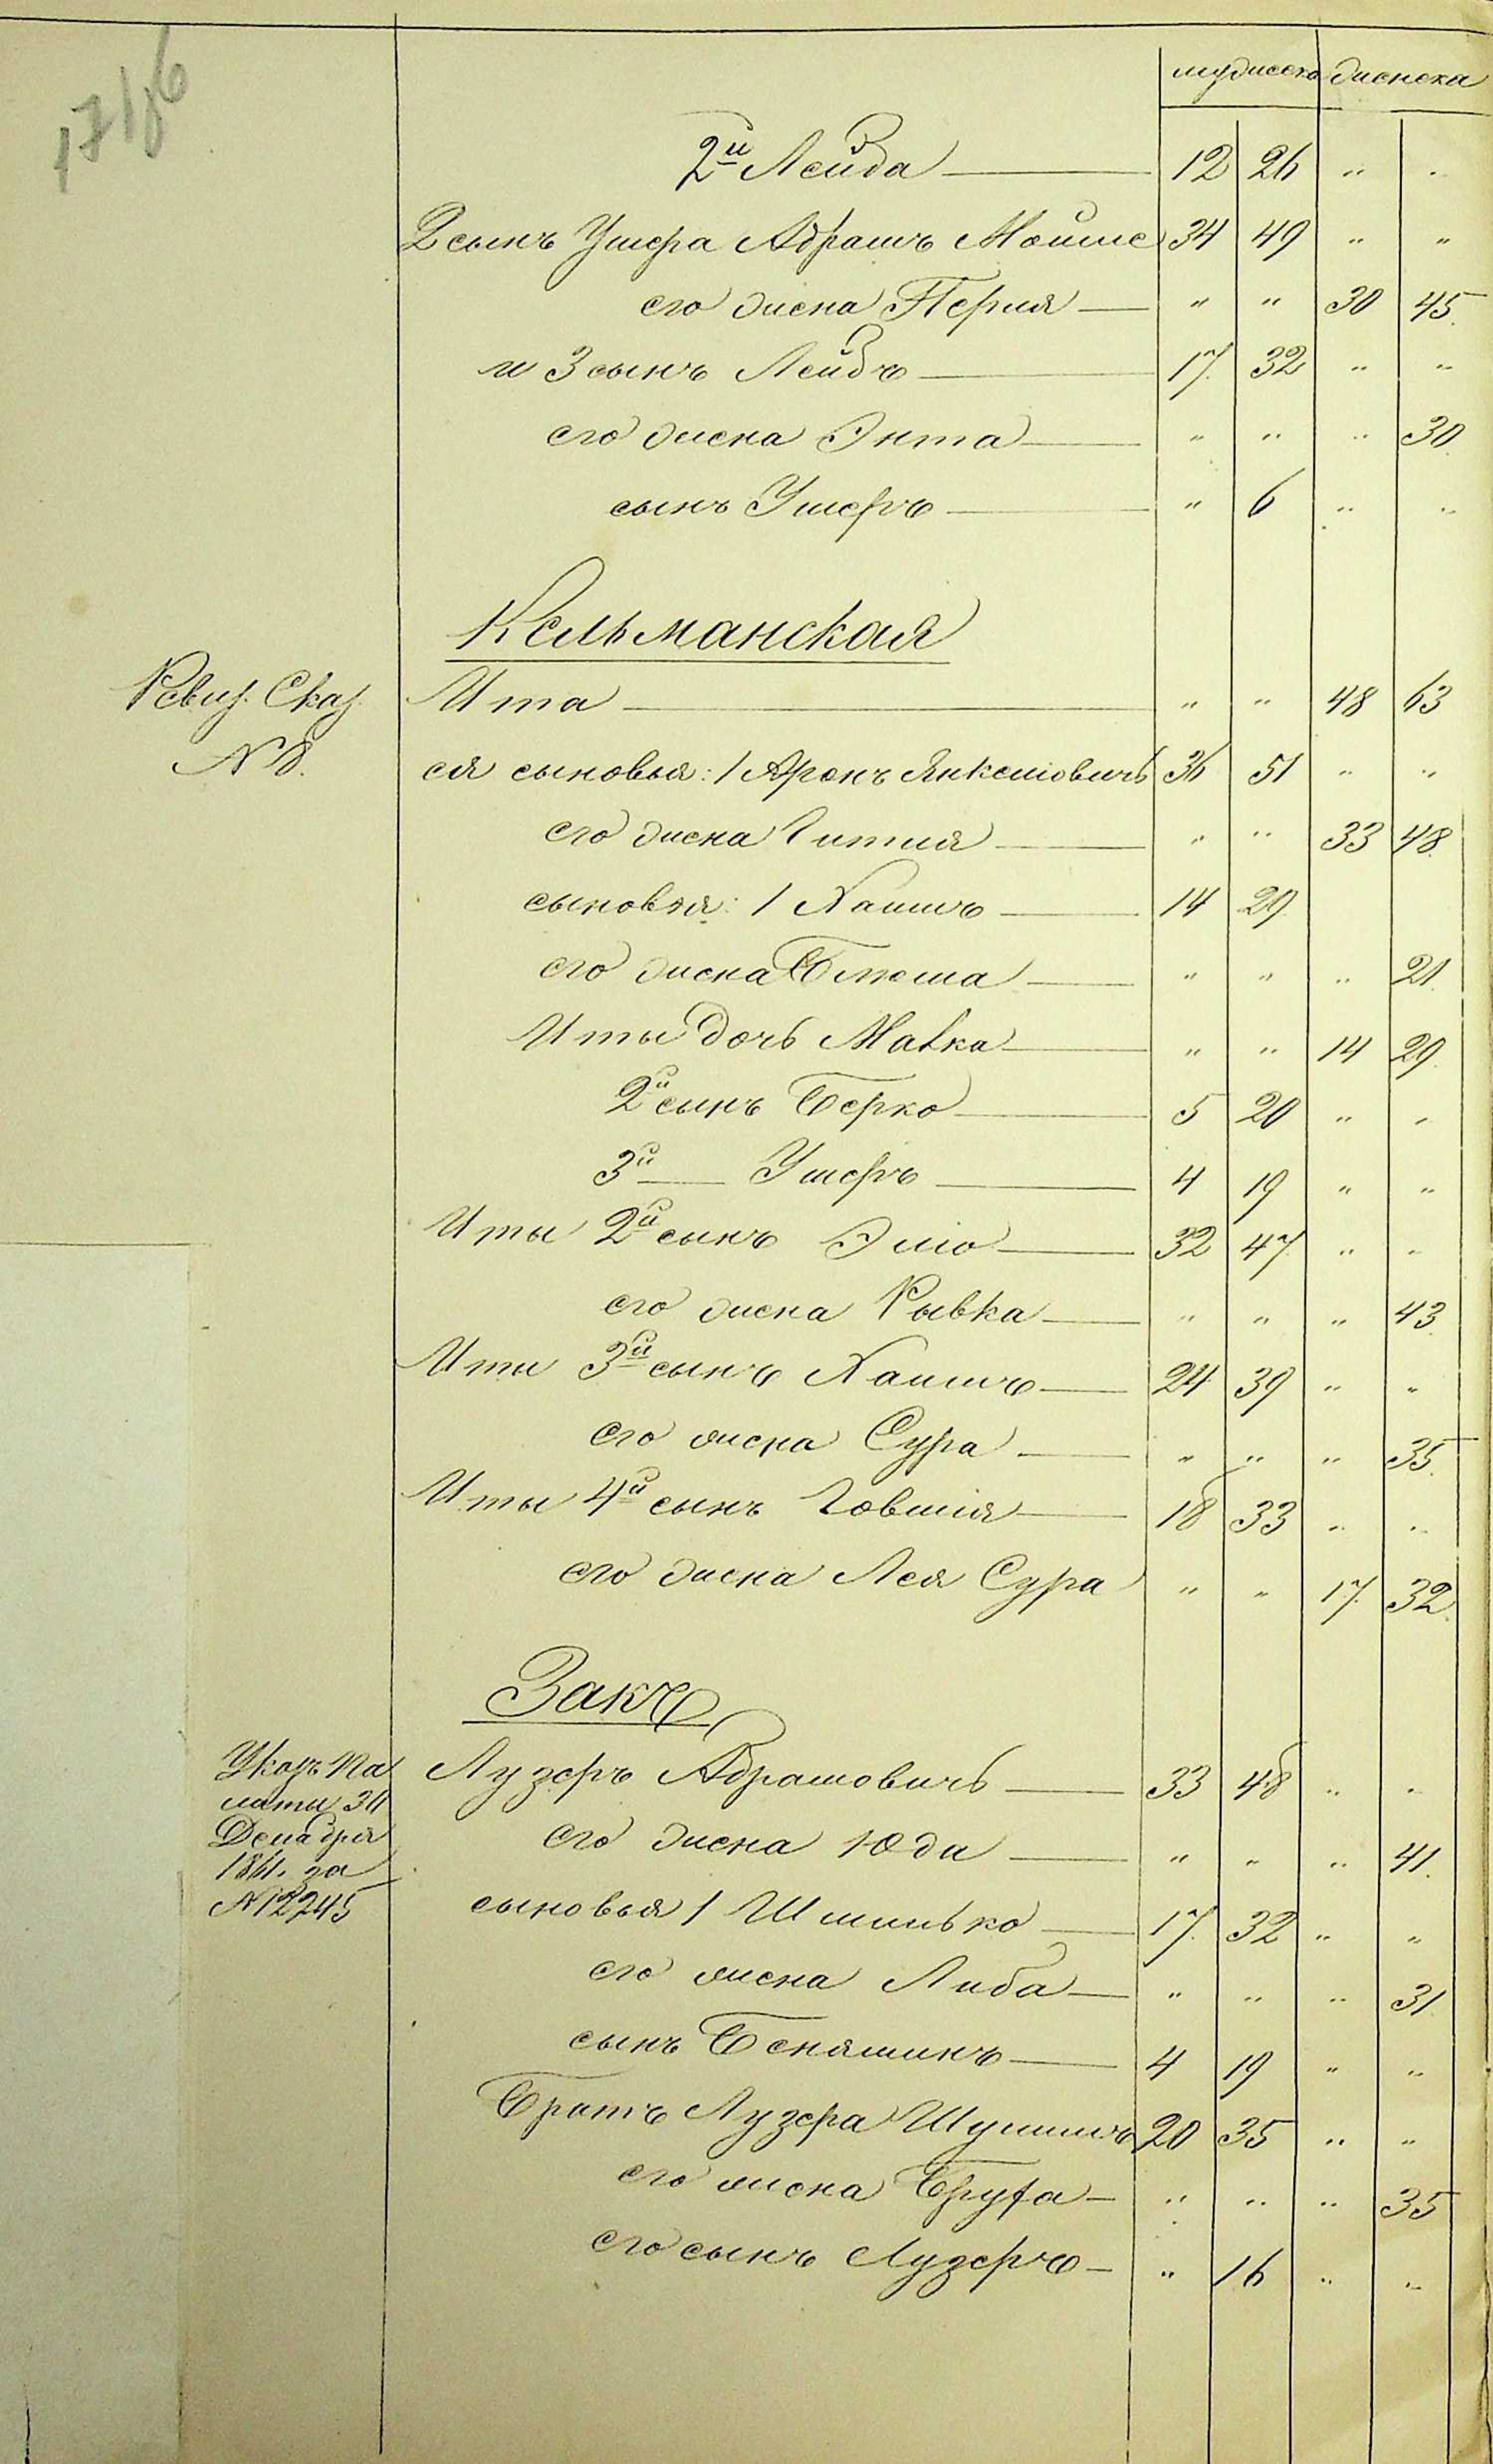 171об
мужеска женска
2й Лейба — 12 26 " "
2 сынъ Ушера Абрамъ Мовше 34 49 " "
его жена Перля — " " 30 45
и 3 сынъ Лейбъ — 17 32 " "
его жена Энта — " " " 30
сынъ Ушеръ — " 6 " "
Кельманская
Ревиз. Сказ.
N 8.
Ита — " " 48 63
ея сыновья: 1 Аронъ Янкелiовичъ 36 51 " "
его жена Гитля — " " 33 48
сыновья: 1 Хаимъ — 14 29
его жена Блюма — " " " 21
Иты дочь Малка — " " 14 29
2й сынъ Берко — 5 20 " "
3й — Ушеръ — 4 19 " "
Иты 2й сынъ Элiо — 32 47 " "
его жена Рывка — " " " 43
Иты 3й сынъ Хаимъ — 24 39 " "
его жена Сура — " " " 35
Иты 4й сынъ Говшiя — 18 33 " "
его жена Лея Сура " " 17 32
Закъ
Указъ Па
латы 30
Декабря
1861. за
N 12245
Лузеръ Абрамовичъ — 33 48 " "
его жена Юда — " " " 41
сыновья 1 Шмилько — 17 32 " "
его жена Либа — " " " 31
сынъ Беняминъ — 4 19 " "
Братъ Лузера Шулимъ 20 35 " "
его жена — " " " 35
его сынъ Лузеръ — " 16 " "